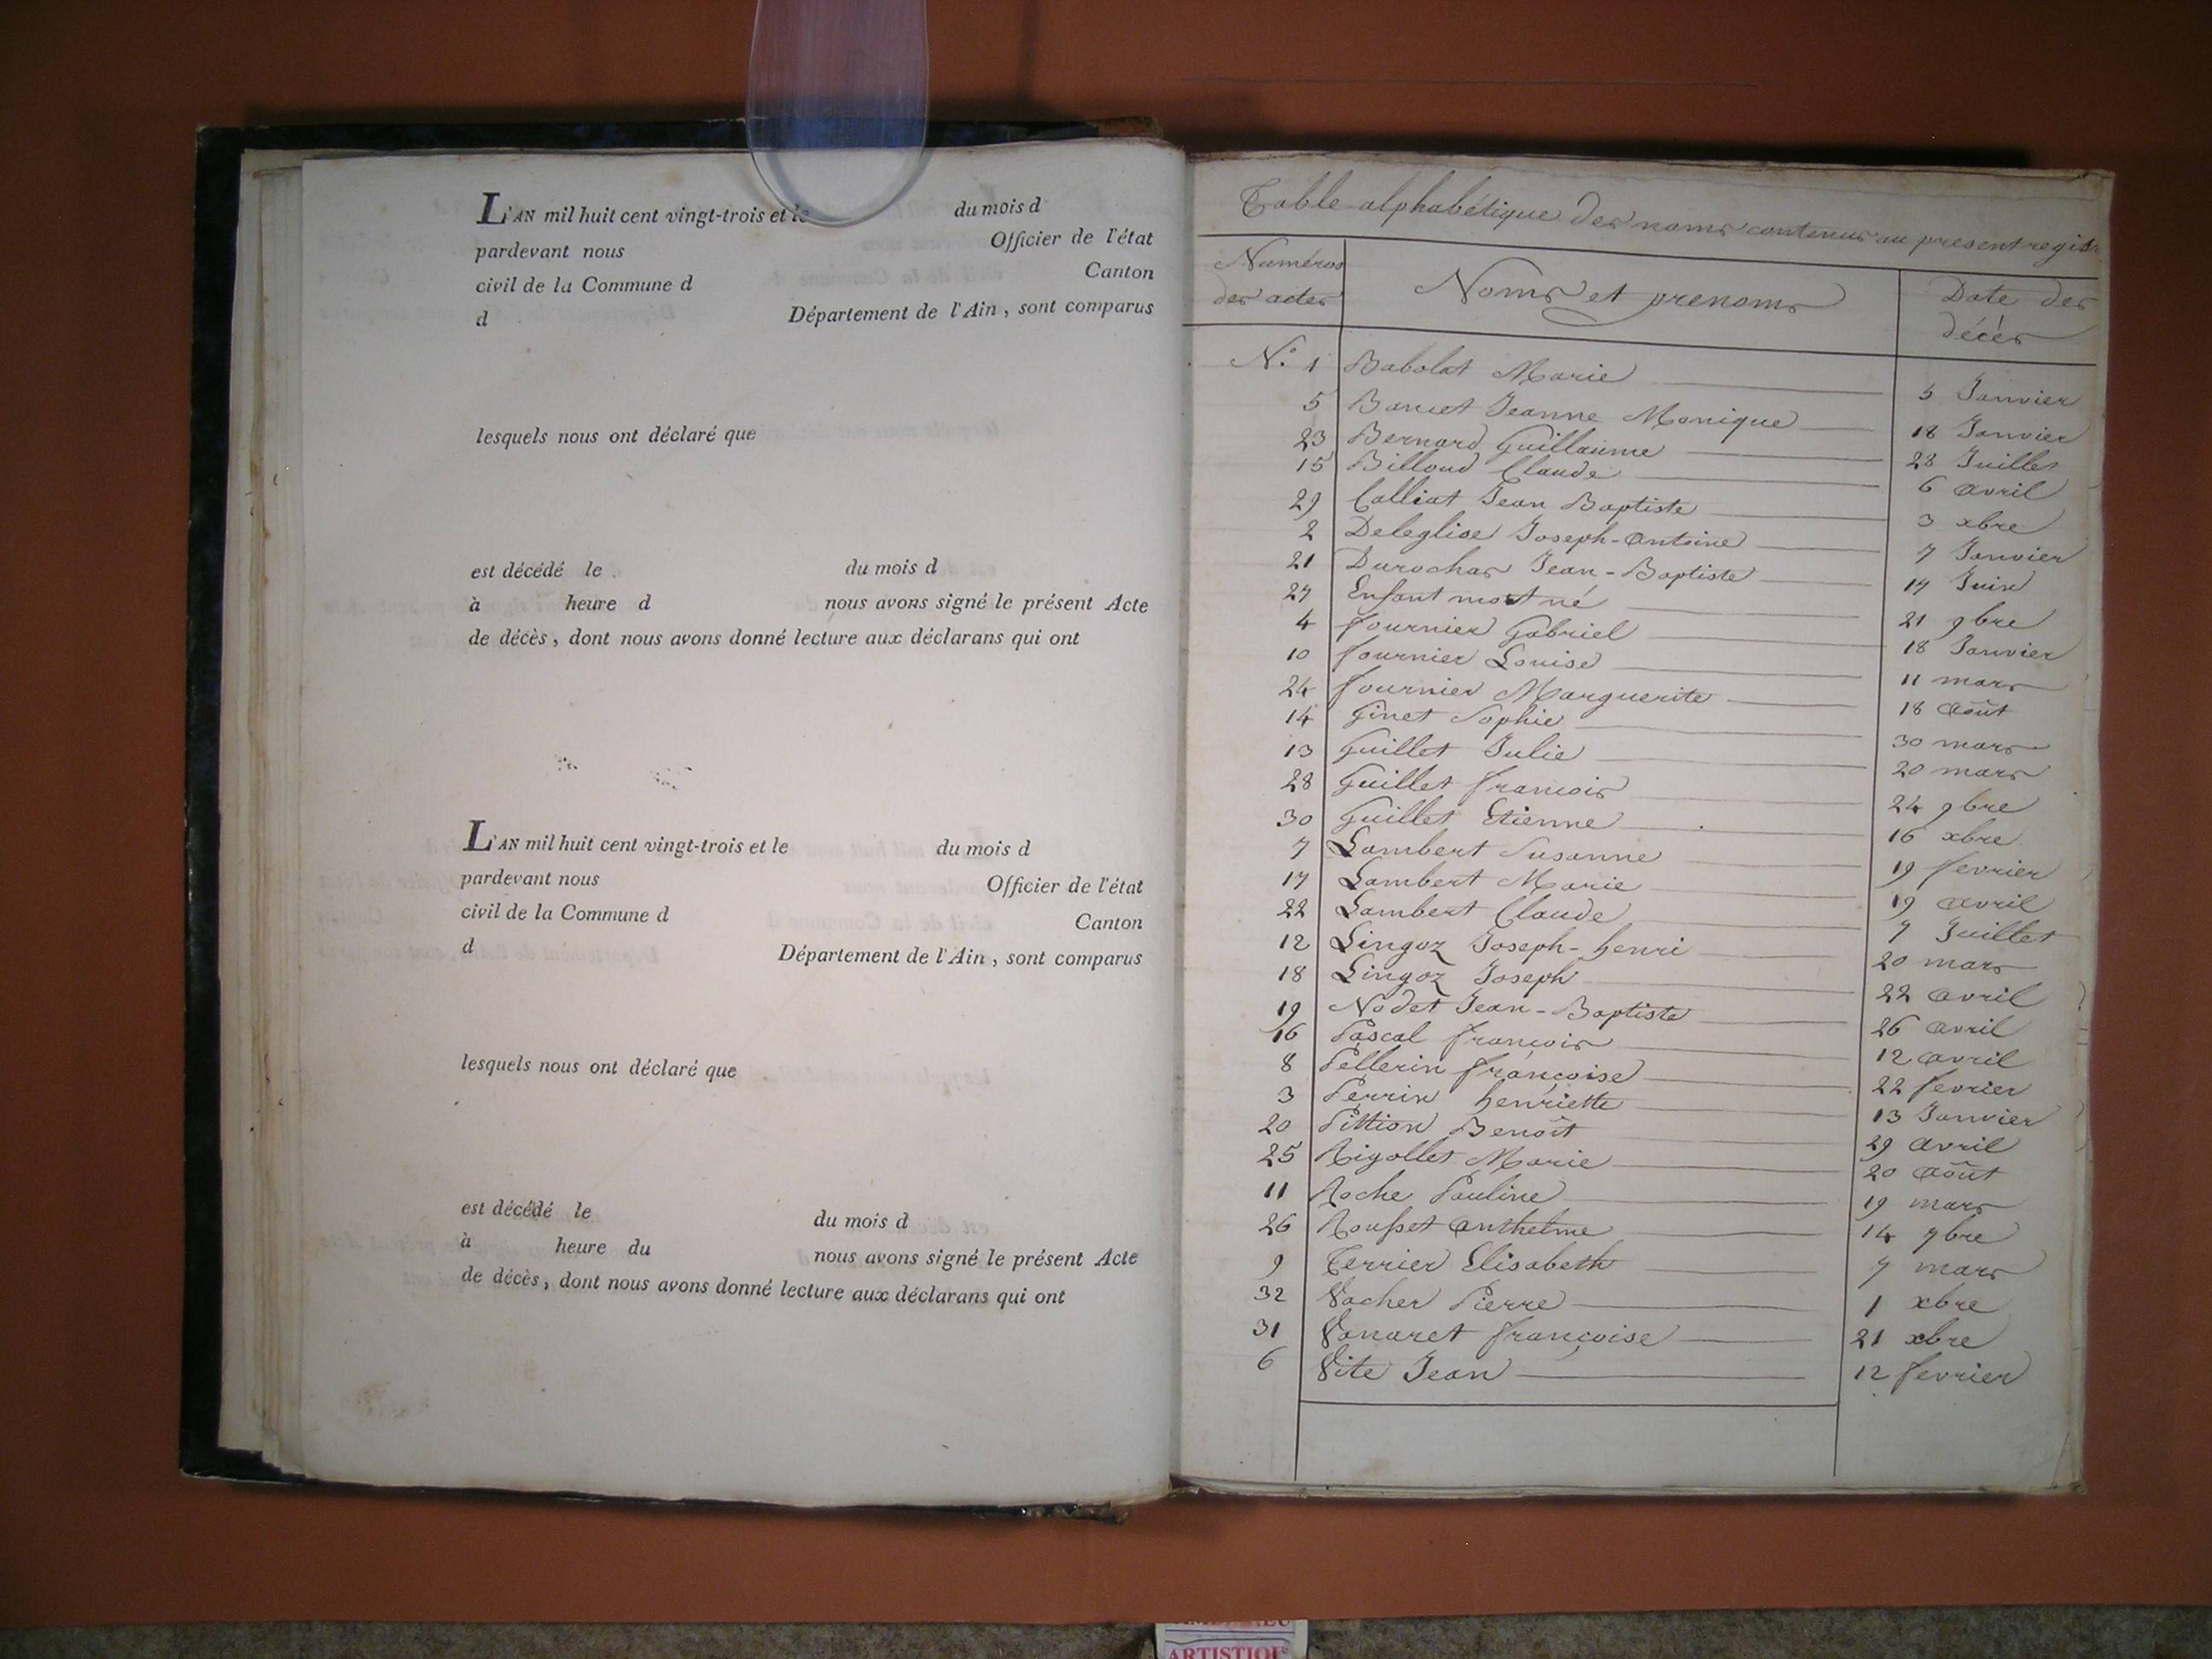 L'AN mil huit cent vingt-trois et le du mois d
pardevant nous Officier de l'état
civil de la Commune d Canton
d Département de l'Ain, sont comparus
lesquels nous ont déclaré que
est décédé le du mois d
à heure d nous avons signé le présent Acte
de décès, dont nous avons donné lecture aux déclarans qui ont
L'AN mil huit cent vingt-trois et le du mois d
pardevant nous Officier de l'état
civil de la Commune d Canton
d Département de l'Ain, sont comparus
lesquels nous ont déclaré que
est décédé le du mois d
à heure du nous avons signé le présent Acte
de décès, dont nous avons donné lecture aux déclarans qui ont
Table alphabétique des noms contenus au present
Numéros des actes Noms et prenoms Date des décès
N.° 1 Babolat Marie 5 Janvier
5 Bancet Jeanne Monique 18 Janvier
23 Bernard Guillaume 28 Juillet
15 Billoud Claude 6 avril
29 Calliat Jean Baptiste 3 xbre
2 Deleglise Joseph-antoine 7 Janvier
21 Durochar Jean-Baptiste 17 Juin
27 Enfant mort né 21 9bre
4 fournier Gabriel 18 Janvier
10 fournier Louise 11 mars
24 fournier Marguerite 18 août
14 Ginet Sophie 30 mars
13 Guillet Julie 20 mars
28 Guillet francois 24 9bre
30 Guillet Etienne 16 xbre
7 Lambert Susanne 19 fevrier
17 Lambert Marie 19 avril
22 Lambert Claude 7 Juillet
12 Lingoz Joseph-henri 20 mars
18 Lingoz Joseph 22 avril
19 Nodet Jean-Baptiste 26 avril
16 Pascal françois 12 avril
8 Pellerin françoise 22 fevrier
3 Perrin henriette 13 Janvier
20 Pittion Benoît 29 avril
25 Rigollet Marie 20 août
11 Roche Pauline 19 mars
26 Rousset anthelme 14 7bre
9 Terrier Elisabeth 7 mars
32 Vacher Pierre 1 xbre
31 Vanaret françoise 21 xbre
6 Vite Jean 12 fevrier
ARTISTIQUE